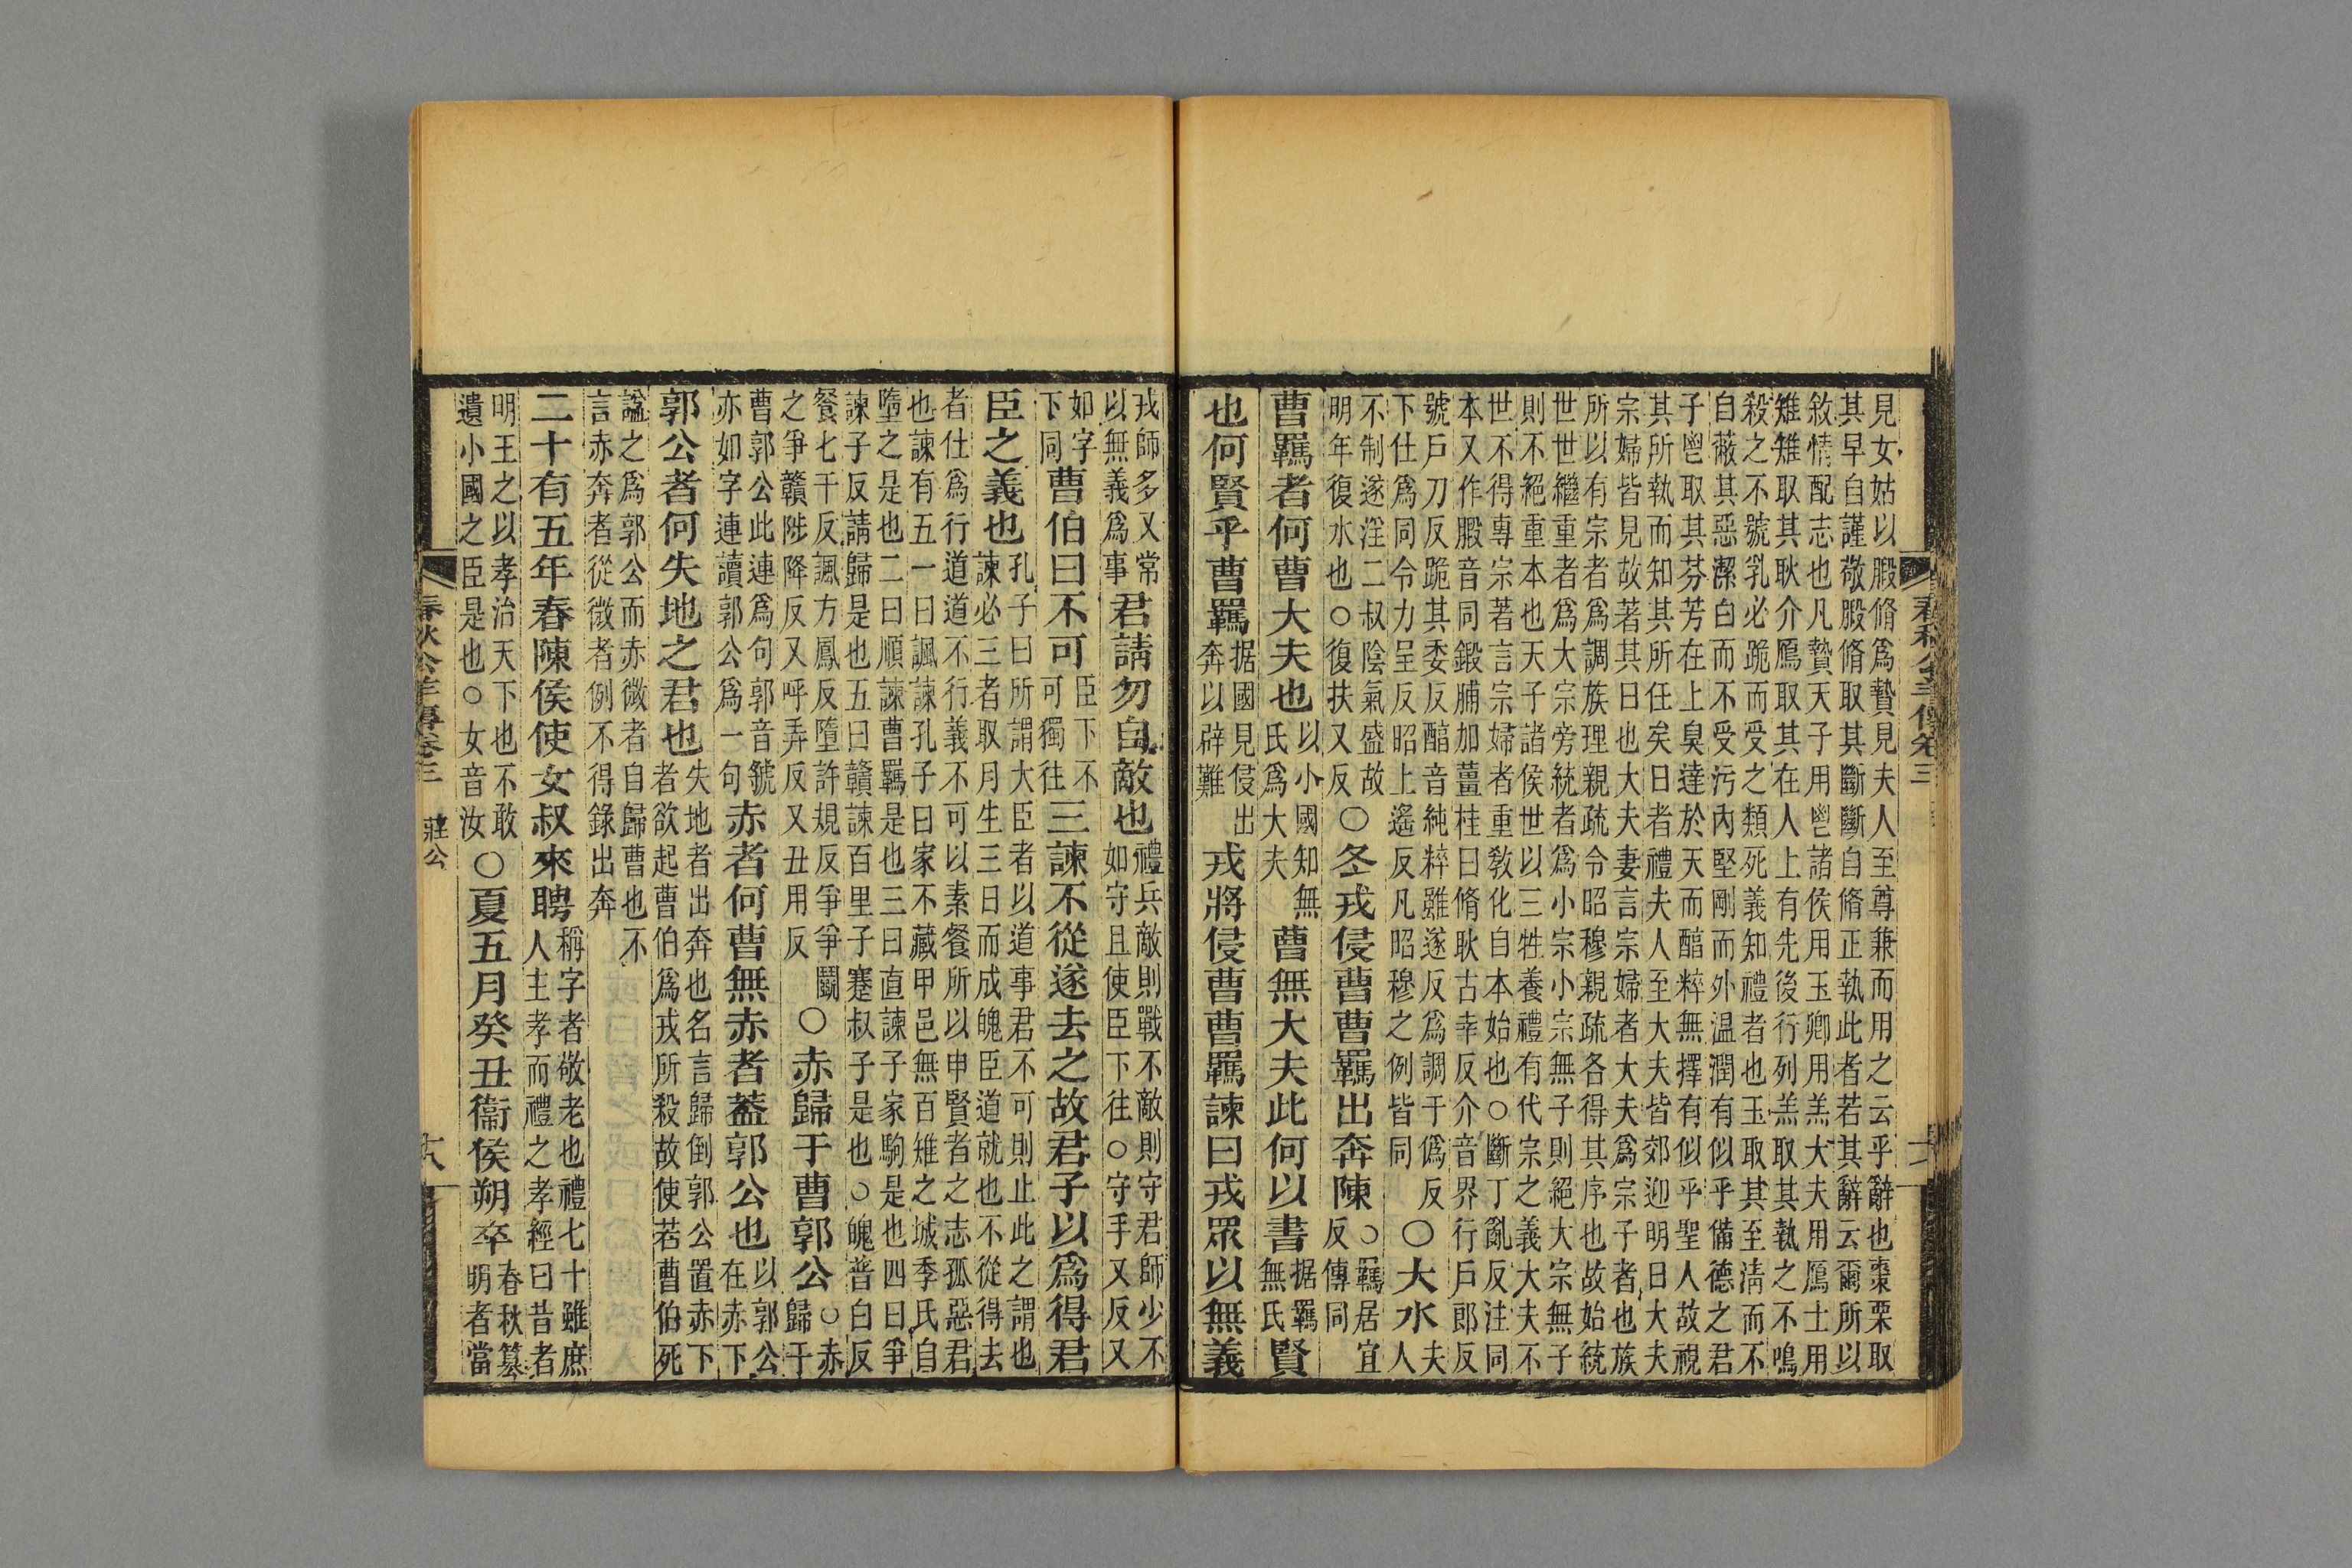 見女姑以腶脩爲贄見夫人至尊兼而用之云乎辭也棗栗取
其早自謹敬腶脩取其斷斷自脩正執此者若其辭云爾所以
敘情配志也凡贄天子用鬯諸侯用玉卿用羔大夫用鴈士用
雉雉取其耿介鴈取其在人上有先後行列羔取其執之不鳴
殺之不號乳必跪而受之類死義知禮者也玉取其至淸而不
自蔽其惡潔白而不受污內堅剛而外温潤有似乎備德之君
子鬯取其芬芳在上臭達於天而醇粹無擇有似乎聖人故視
其所執而知其所任矣日者禮夫人至大夫皆郊迎明日大夫
宗婦皆見故著其日也大夫妻言宗婦者大夫爲宗子者也族
所以有宗者爲調族理親疏令昭穆親疏各得其序也故始統
世世繼重者爲大宗旁統者爲小宗小宗無子則絕大宗無子
則不絕重本也天子諸侯世以三牲養禮有代宗之義大夫不
世不得專宗著言宗婦者重敎化自本始也○斷丁亂反注同
本又作腶音同鍛脯加薑桂曰脩耿古幸反介音界行戶郎反
號戶刀反跪其委反醇音純粹雖遂反爲調于僞反
下仕爲同令力呈反昭上遙反凡昭穆之例皆同
○大水
夫人
不制遂淫二叔陰氣盛故
明年復水也○復扶又反
○冬戎侵曹曹羈出奔陳
○羈居宜
反傳同
曹羈者何曹大夫也
以小國知無
氏爲大夫
曹無大夫此何以書
据羈
無氏
賢
也何賢乎曹羈
据國見侵出
奔以辟難
戎將侵曹曹羈諫曰戎眾以無義
戎師多又常
以無義爲事
君請勿自敵也
禮兵敵則戰不敵則守君師少不
如守且使臣下往○守手又反又
如字
下同
曹伯曰不可
臣下不
可獨往
三諫不從遂去之故君子以爲得君
臣之義也
孔子曰所謂大臣者以道事君不可則止此之謂也
諫必三者取月生三日而成魄臣道就也不從得去
者仕爲行道道不行義不可以素餐所以申賢者之志孤惡君
也諫有五一曰諷諫孔子曰家不藏甲邑無百雉之城季氏自
墮之是也二曰順諫曹羈是也三曰直諫子家駒是也四曰爭
諫子反請歸是也五曰贛諫百里子蹇叔子是也○魄普白反
餐七干反諷方鳳反墮許規反爭爭鬭
之爭贛陟降反又呼弄反又丑用反
○赤歸于曹郭公
○赤
歸于
曹郭公此連爲句郭音虢
亦如字連讀郭公爲一句
赤者何曹無赤者葢郭公也
以郭公
在赤下
郭公者何失地之君也
失地者出奔也名言歸倒郭公置赤下
者欲起曹伯爲戎所殺故使若曹伯死
諡之爲郭公而赤微者自歸曹也不
言赤奔者從微者例不得錄出奔
二十有五年春陳侯使女叔來聘
稱字者敬老也禮七十雖庶
人主孝而禮之孝經曰昔者
明王之以孝治天下也不敢
遺小國之臣是也○女音汝
○夏五月癸丑衞侯朔卒
春秋篡
明者當
莊公